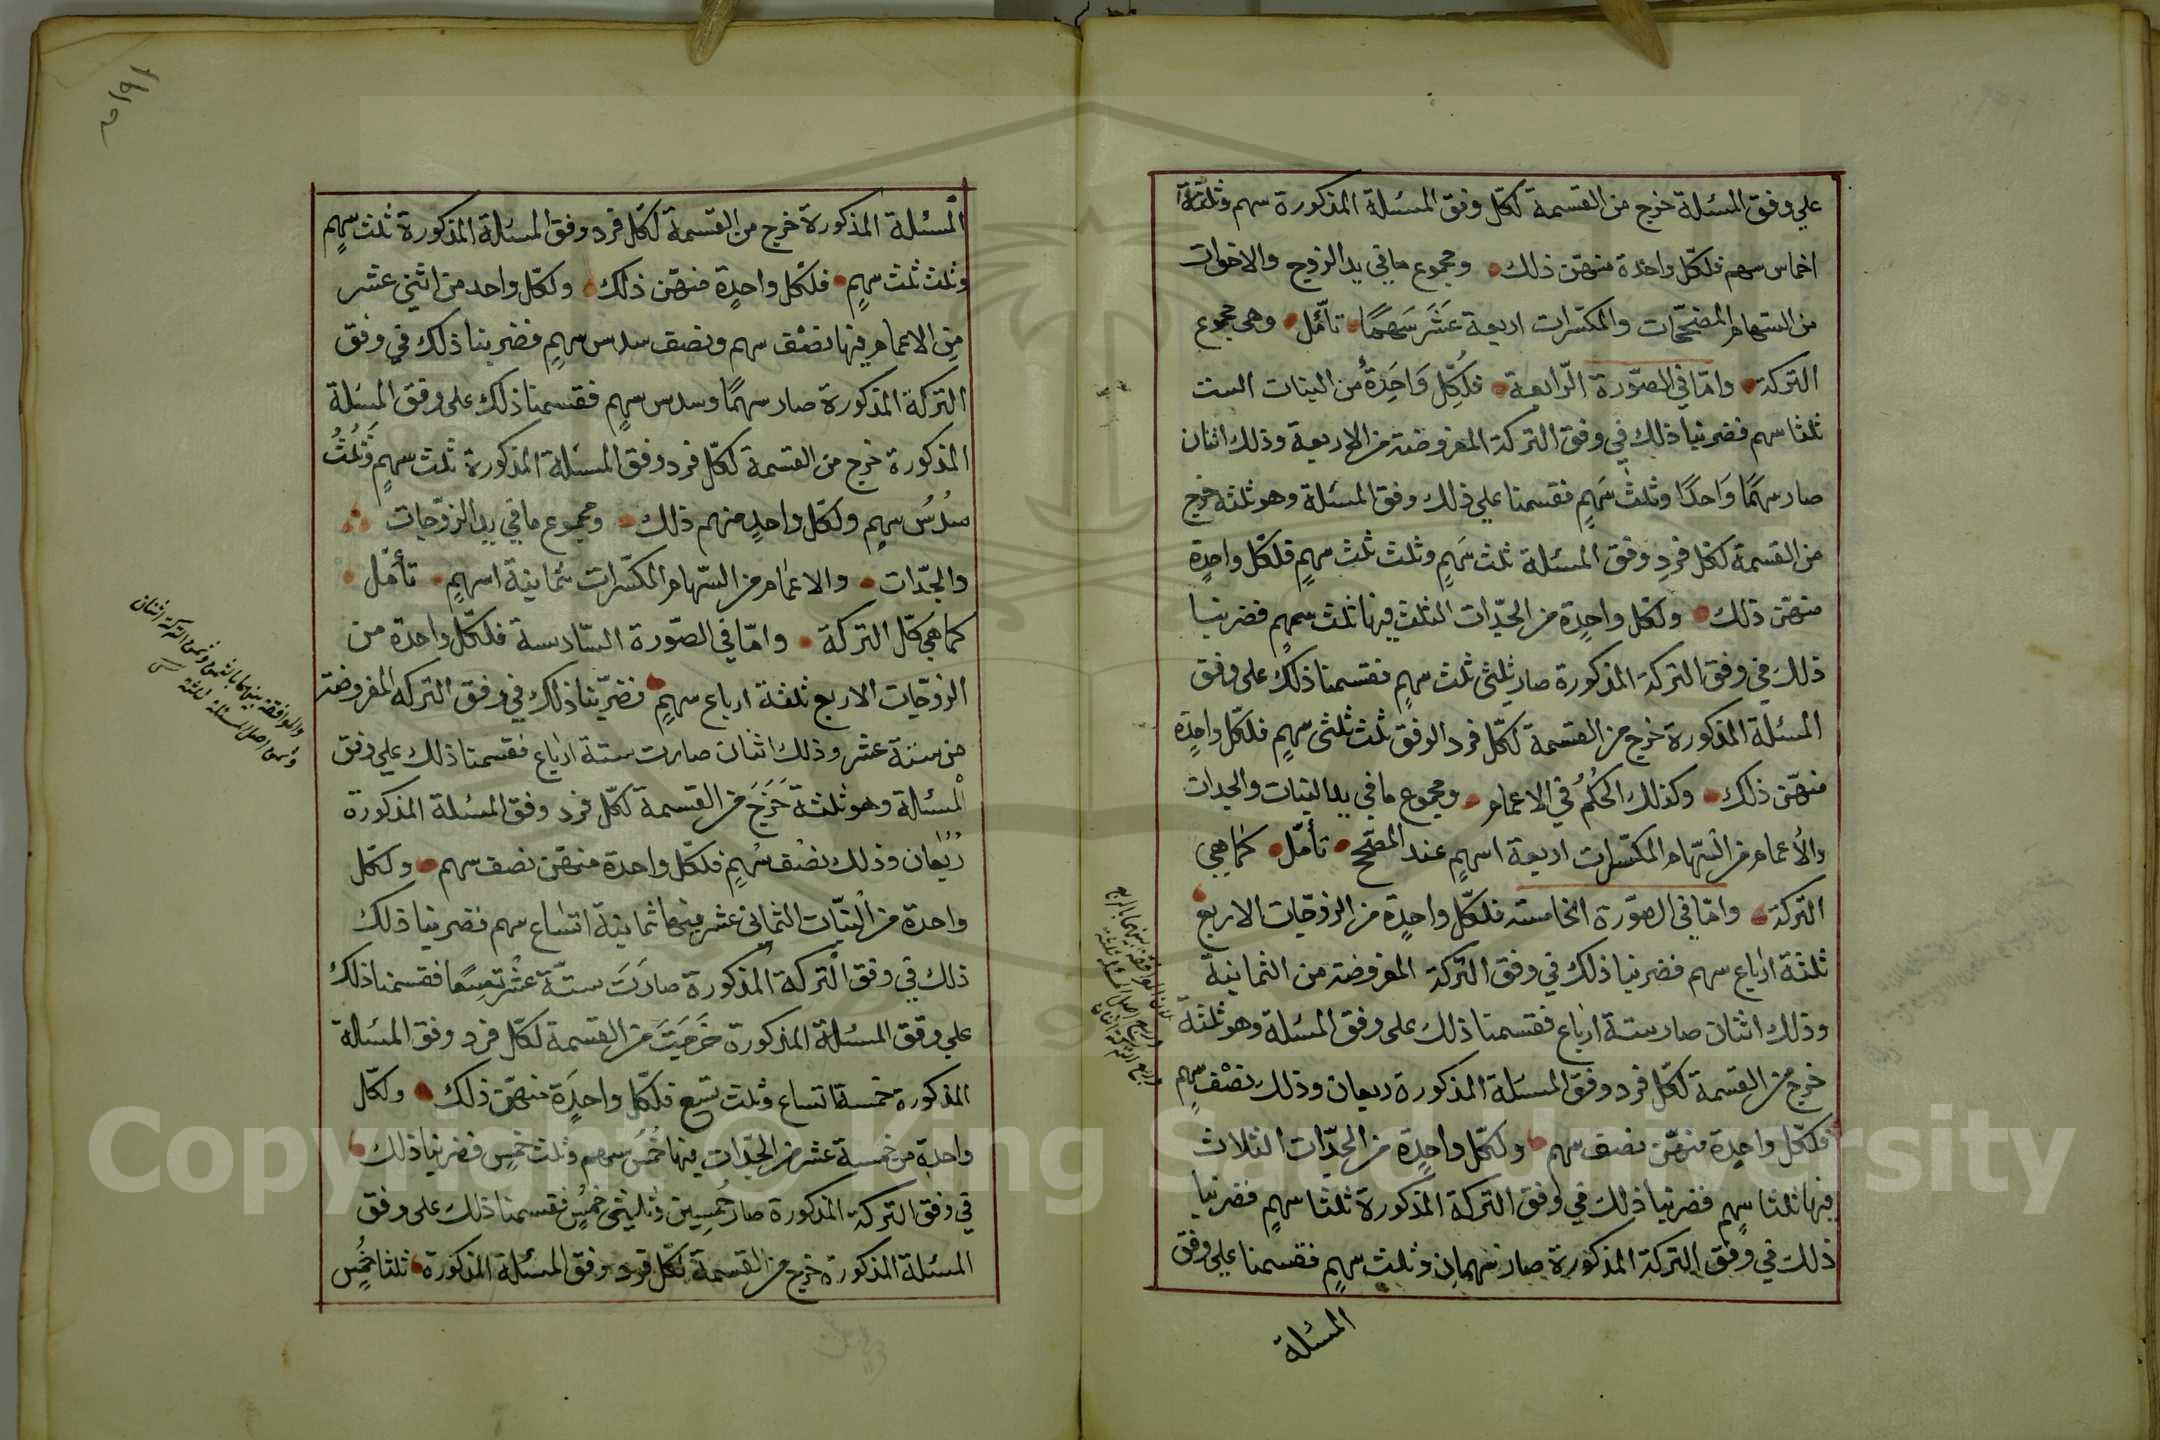 على وفق المسئلة خرج من القسمة لكل وفق المسئلة المذكورة سهم وثلثة
اخماس سهم فلكل واحدة منهن ذلك ومجموع ما في يد الزوج والاخوات
من السهام المصححات والمكسرات اربعة عَشَرَ سَهمًا تأمل وهي مجموع
التركة واما في الصورة الرابعة فلكل وَاحِدَة من البنات الست
ثلثا سهم فضربنا ذلك في وفق التركة المفروضة من الاربعة وذلك اثنان
صار سهمًا وَاحدًا وثلثُ سَهمٍ فقسمنا على ذلك وفق المسئلة وهو ثلثة خرج
من القسمة لكل فردِ وفق المسئلة ثلث سَهمٍ وثلث ثلث سهمٍ فلكل واحدٍة
منهن ذلك ولكل واحدٍة من الجدّات الثلث فيها ثلث سهمٍ فضربنا
ذلك في وفق التركة المذكورة صار ثلثى ثلث سهمٍ فقسمنا ذلك على وفق
المسئلة المذكورة خرج من القسمة لكل فرد الوفق ثلث ثلثى سهمٍ فلكل واحدٍة
منهن ذلك وكذلك الحُكمُ في الاعمام ومجموع ما في يد البنات والجدات
والأعمام من السّهام المكسّرات اربعة اسهمٍ عند المصَحّح تأمّل كما هي
التركة واما في الصورة الخامسة فلكل واحدٍة من الزوجات الاربع
ثلثة ارباع سهم فضربنا ذلك في وفق التركة المفروضة من الثمانية
وذلك اثنان صار ستة ارباع فقسمنا ذلك على وفق المسئلة وهو ثلثة
خرج من القسمة لكل فرد وفق المسئلة المذكورة ربعان وذلك نصْف سهمٍ
فلكل واحدٍة منهن نصف سهم ولكل واحدٍة من الجدّات الثلاث
فيها ثلثا سهمٍ فضربنا ذلك في وفق التركة المذكورة ثلثا سهمٍ فضربنا
ذلك في وفق التركة المذكورة صار سهمان وثلث سهمٍ فقسمنا على وفق
المسئلة
المسئلة المذكورة خرج من القسمة لكل فرد وفق المسئلة المذكورة ثلث سهمٍ
وثلث ثلث سهمٍ فلكل واحدٍة منهن ذلك ولكل واحد من اثنى عشر
مِن الاعمام فيها نصْف سهم ونصف سدس سهمٍ فضربنا ذلك في وفق
التركة المذكورة صار سهمًا وسدس سهمٍ فقسمنا ذلك على وفق المسئلة
المذكورة خرج من القسمة لكل فرد وفق المسئلة المذكورة ثلث سهمٍ وَثلُثُ
سُدُسُ سهم ولكل واحدٍ منهم ذلك ومجموع ما في يد الزوجات
والجدّات والاعمام من السّهام المكسّرات ثمانية اسهمٍ تأمّل
كما هي كل التركة واما في الصورة السّادسة فلكل واحدة من
الزوجات الاربع ثلثة ارباع سهمٍ فضربنا ذلك في وفق التركة المفروضة
من ستة عشر وذلك اثنان صارت ستة ارباع فقسمنا ذلك على وفق
المسئلة وهو ثلثة خَرَجَ من القسمة لكل فرد وفق المسئلة المذكورة
رُبُعان وذلك نصْف سهْمٍ فلكل واحدة منهن نصف سهم ولكل
واحدة من البنات الثمانى عشر فيها ثمانية اتساع سهم فضربنا ذلك
ذلك في وفق التركة المذكورة صارَتَ ستة عشْر تسِعًا فقسمنا ذلك
على وفق المسئلة المذكورة خَرَجَتَ من القسمة لكل فرد وفق المسئلة
المذكورة خمسة اتساع وثلث تسع فلكل واحدٍَة منهن ذلك ولكل
واحدة من خمسة عشر من الجدّات فيها خُمسَ سهم وثلث خمسٍ فضربنا ذلك
في وفق التركة المذكورة صار خُمسِين وثلثى خمُسٍ فقسمنا ذلك على وفق
المسئلة المذكورة خرج من القسمة لكل فرد وفق المسئلة المذكورة ثلثا خُمٍس
والموافقة بينهما بالثمن وثمن التركة اثنان
وثمن اصل المسئلة ثلثة
Copyright © King Saud University